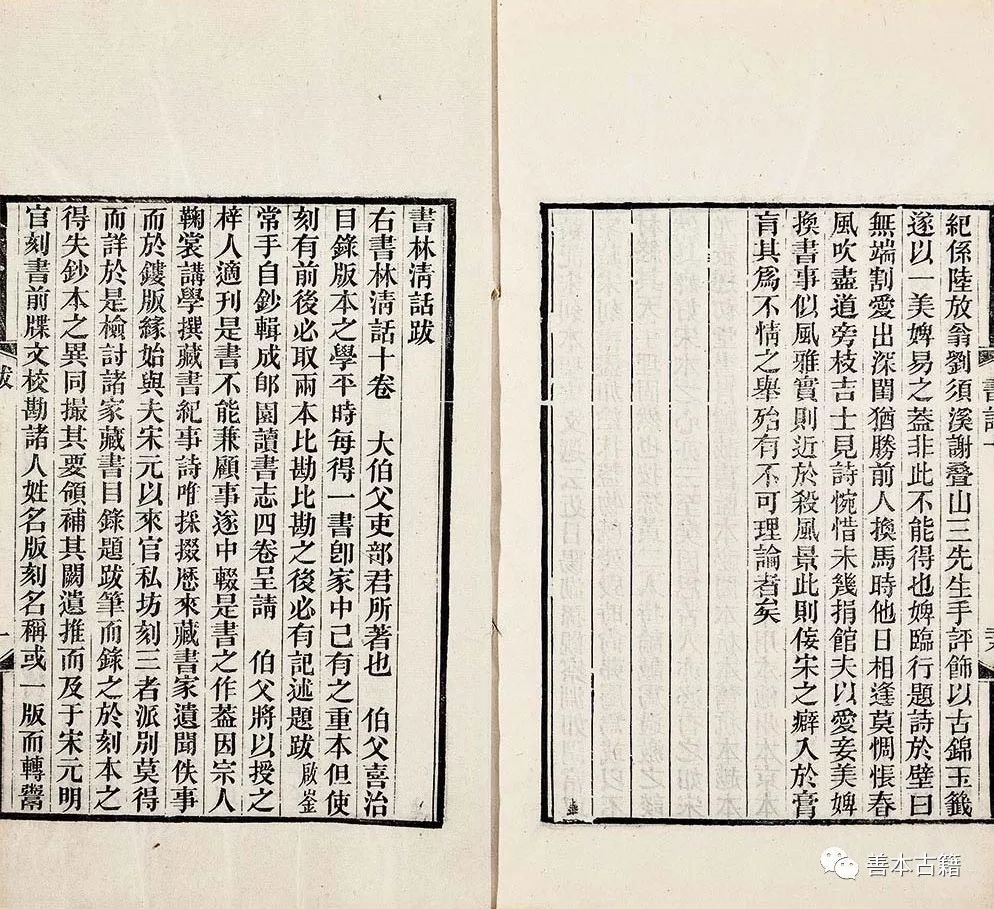 紀係陸放翁劉須溪謝疊山三先生手評飾以古錦玉籤
遂以一美婢易之蓋非此不能得也婢臨行題詩於壁曰
無端割愛出深閨猶勝前人換馬時他日相逢莫惆悵春
風吹盡道旁枝吉士見詩惋惜未幾捐館夫以愛妾美婢
換書事似風雅實則近於殺風景此則佞宋之癖入於膏
肓其爲不情之舉殆有不可理論者矣
書林清話跋
右書林清話十卷　大伯父吏部君所著也　伯父喜治
目錄版本之學平時每得一書卽家中已有之重本但使
刻有前後必取兩本比勘比勘之後必有記述題跋啟崟
常手自鈔輯成郋園讀書志四卷呈請　伯父將以授之
梓人適刊是書不能兼顧事遂中輟是書之作蓋因宗人
鞠裳講學撰藏書紀事詩唯採掇厯來藏書家遺聞佚事
而於鏤版緣始與夫宋元以來官私坊刻三者派別莫得
而詳於是檢討諸家藏書目錄題跋筆而錄之於刻本之
得失鈔本之異同撮其要領補其闕遺推而及于宋元明
官刻書前牒文校勘諸人姓名版刻名稱或一版而轉鬻
跋
一
善本古籍